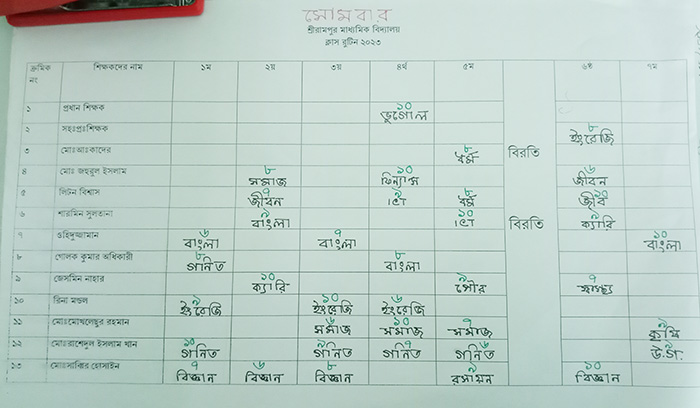 সোমবার
শ্রীরামপুর মাধ্যমিক বিদ্যালয়
ক্লাস রুটিন ২০২৩
ক্রমিক নং শিক্ষকদের নাম ১ম ২য় ৩য় ৪র্থ ৫ম বিরতি ৬ষ্ঠ ৭ম
১ প্রধান শিক্ষক ১০ ভূগোল
২ সহঃপ্রঃশিক্ষক ৮ ইংরেজি
৩ মোঃআঃকাদের ৮ ধর্ম
বিরতি
৪ মোঃ জহুরুল ইসলাম ৮ সমাজ ১০ ফিন্যান্স ৬ জীবন
৫ লিটন বিশ্বাস ৭ জীবন ৯ ICT ৮ ধর্ম ১০ জীব
৬ শারমিন সুলতানা ৯ বাংলা ১০ ICT ৯ ক্যারি
৭ ওহিদুজ্জামান ৬ বাংলা ৭ বাংলা ১০ বাংলা
৮ গোলক কুমার অধিকারী ৮ গনিত ৮ বাংলা
৯ জেসমিন নাহার ১০ ক্যারি ৯ পৌর ৭ স্বাস্থ্য
১০ রিনা মন্ডল ৯ ইংরেজি ১০ ইংরেজি ৬ ইংরেজি
১১ মোঃমোখলেছুর রহমান ৬ সমাজ ১০ সমাজ ৭ সমাজ ৯ কৃষি
১২ মোঃরাশেদুল ইসলাম খান ১০ গনিত ৯ গনিত ৭ গনিত ৬ গনিত ৯ উ.গ.
১৩ মোঃসাব্বির হোসাইন ৭ বিজ্ঞান ৬ বিজ্ঞান ৮ বিজ্ঞান ৯ রসায়ন ১০ বিজ্ঞান